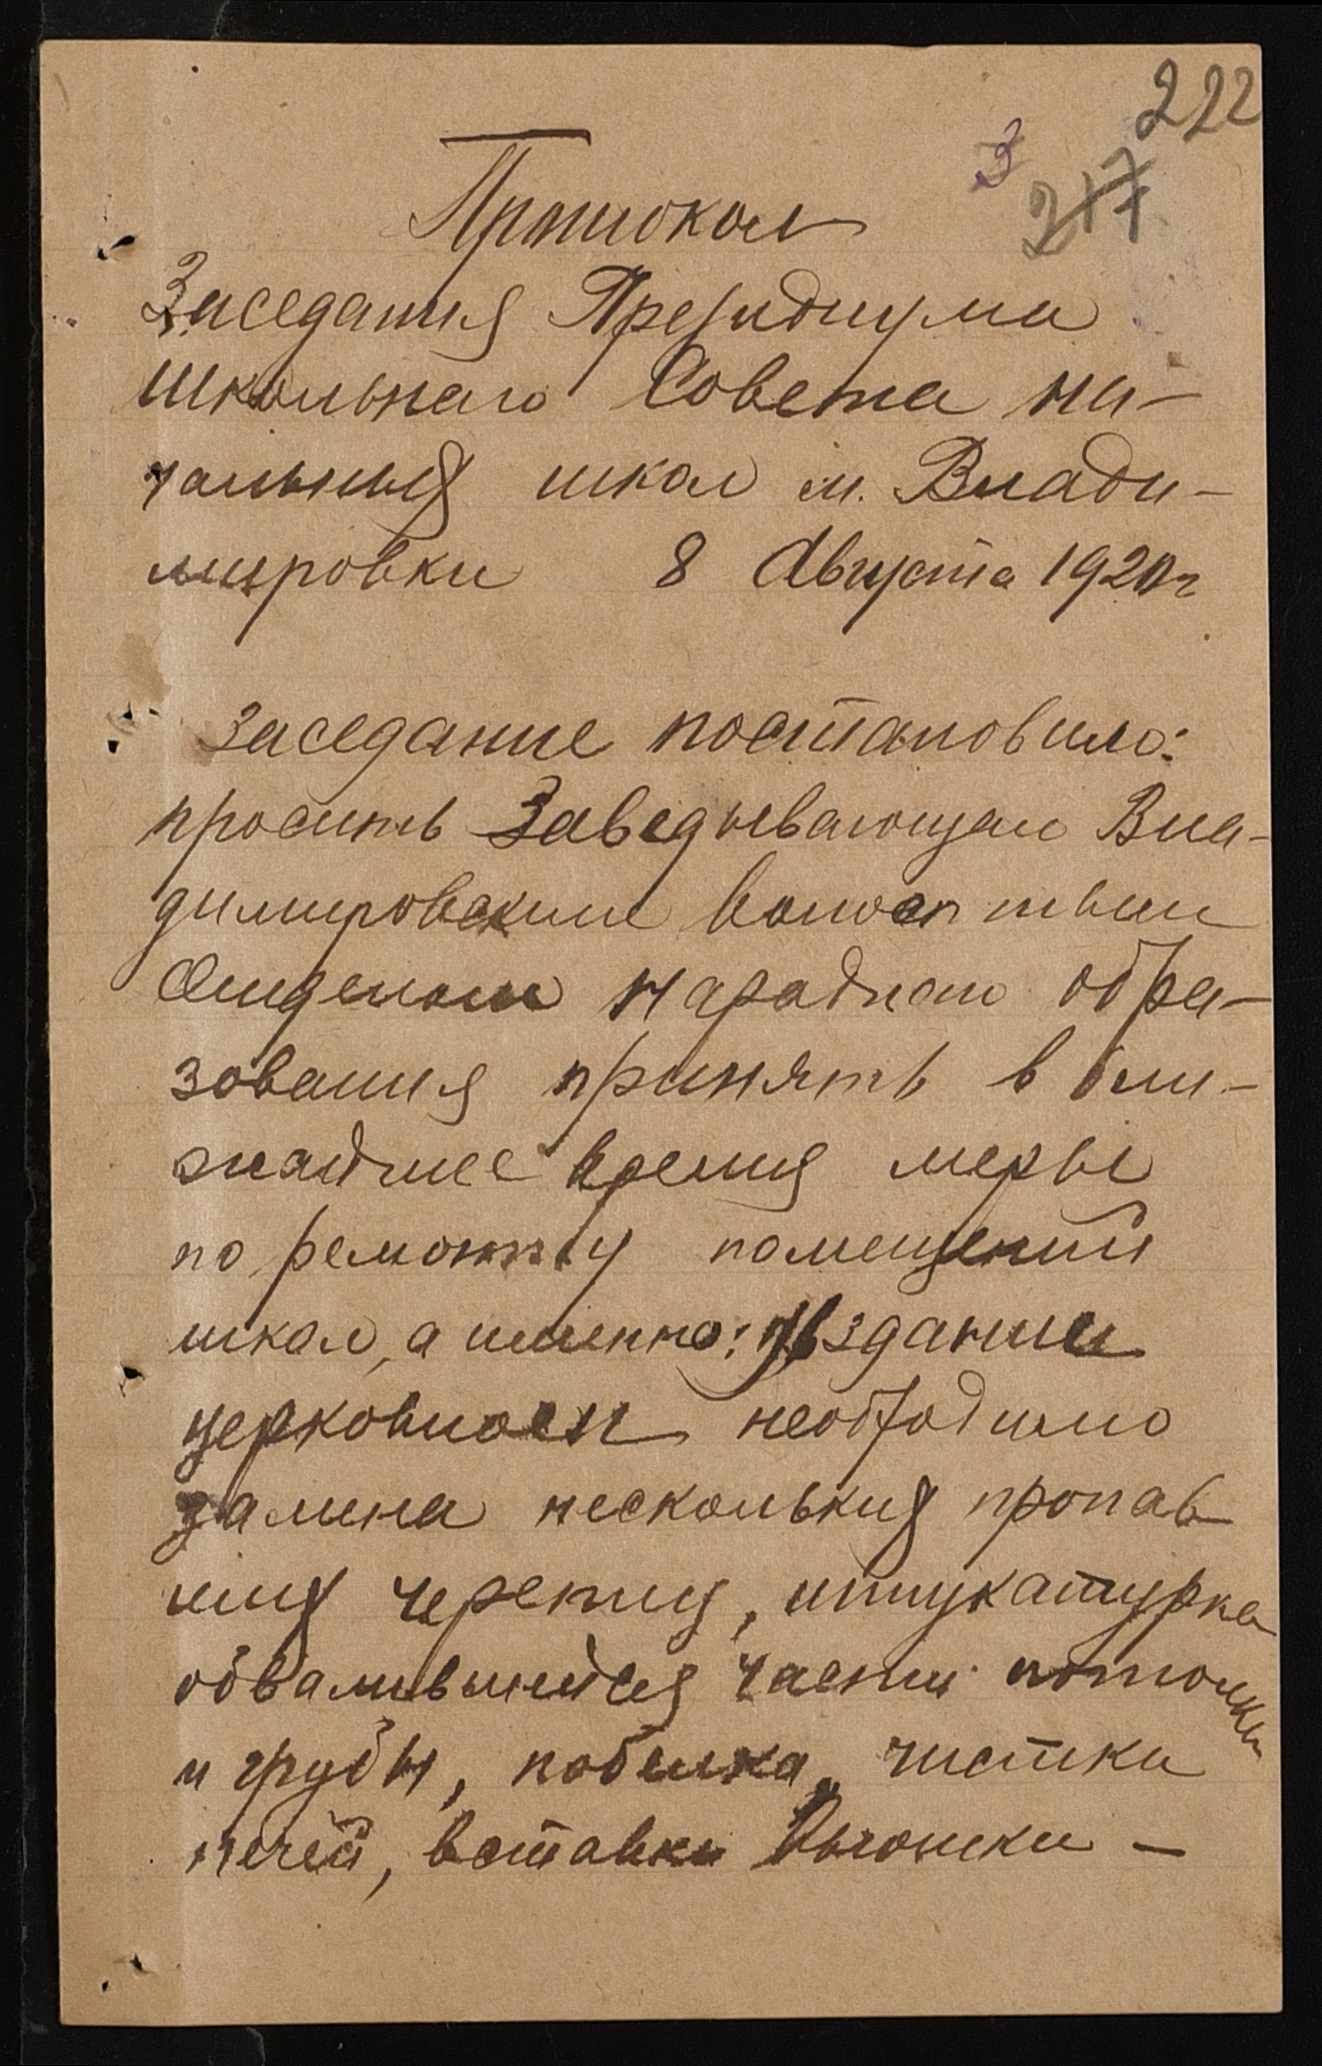 222
3
217
Протокол
Заседания Президиума
Школьнаго Совета на-
чальных школ м. Влади-
мировки 8 Августа 1920 г
Заседание постановило:
просить Заведывающаго Вла-
димировским волостным
Отделом народнаго обра-
зования принять в бли-
жайшее время меры
по ремонту помещений
школ, а именно: в здании
церковном необходимо
замена нескольких пропав
ших черепиц, штукатурка
обвалившейся части потолка
и трубы, побелка, чистка
печей, вставка